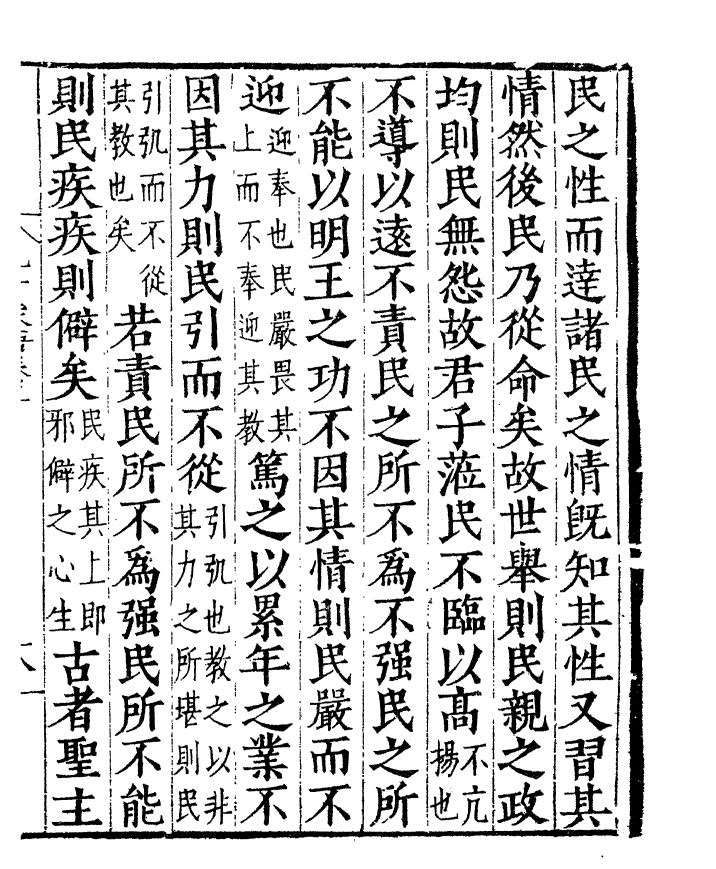 民之性而達諸民之情旣知其性又習其
情然後民乃從命矣故世舉則民親之政
均則民無怨故君子蒞民不臨以髙不亢揚也
不導以遠不責民之所不爲不强民之所
不能以明王之功不因其情則民嚴而不
迎迎奉也民嚴畏其上而不奉迎其教篤之以累年之業不
因其力則民引而不從引弘也教之以非其力之所堪則民
引弘而不從其教也矣若責民所不爲强民所不能
則民疾疾則僻矣民疾其上即邪僻之心生古者聖主